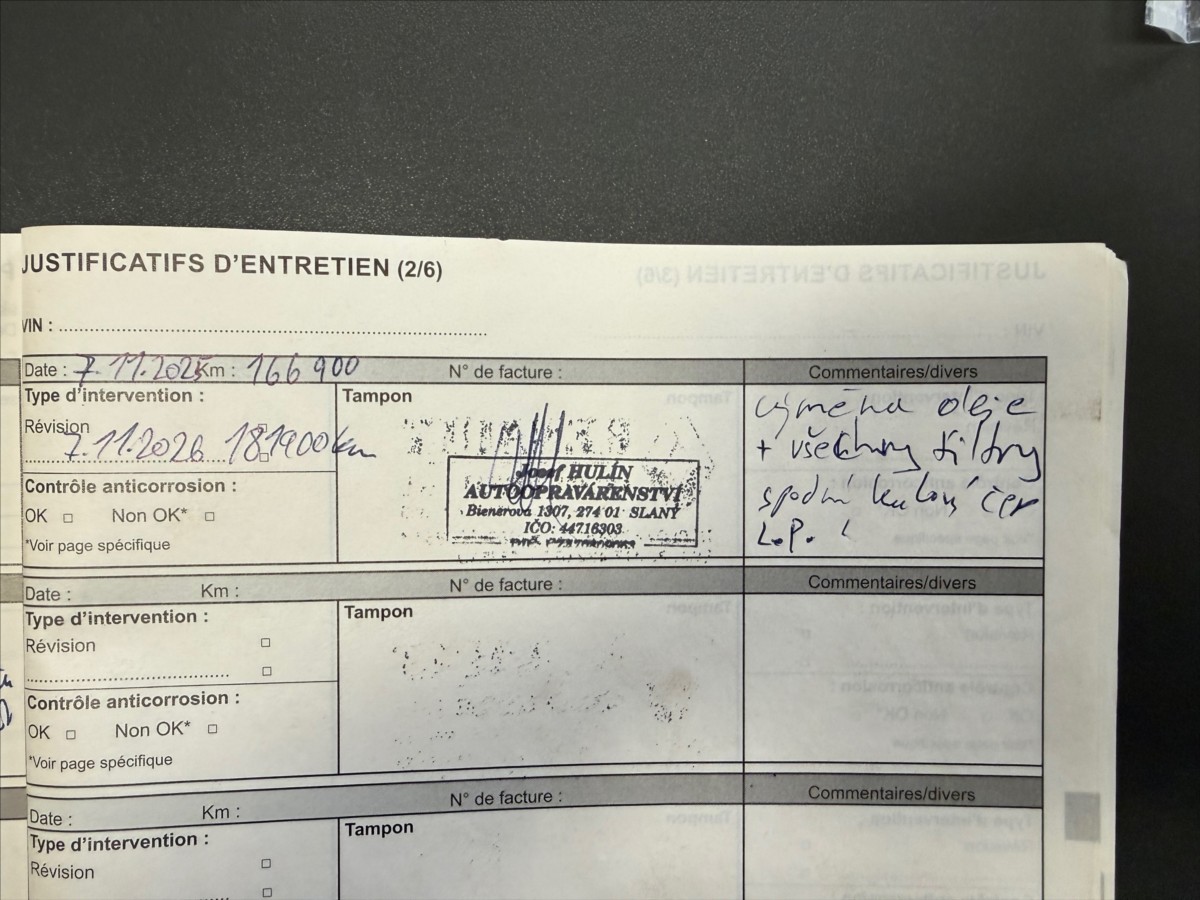 JUSTIFICATIFS D'ENTRETIEN (2/6)
VIN :
Date : 7.11.2025 Km : 166 900 N° de facture : Commentaires/divers
Type d'intervention :
Révision
7.11.2026 181900 km
Contrôle anticorrosion :
OK Non OK*
*Voir page spécifique
Tampon
Josef HULÍN
AUTOOPRAVÁRENSTVÍ
Bienerova 1307, 274 01 SLANÝ
IČO: 44716303
výměna oleje
+ všechny filtry
spodní kulový čep
L.P.
Date : Km : N° de facture : Commentaires/divers
Type d'intervention :
Révision
Contrôle anticorrosion :
OK Non OK*
*Voir page spécifique
Tampon
Date : Km : N° de facture : Commentaires/divers
Type d'intervention :
Révision
Tampon